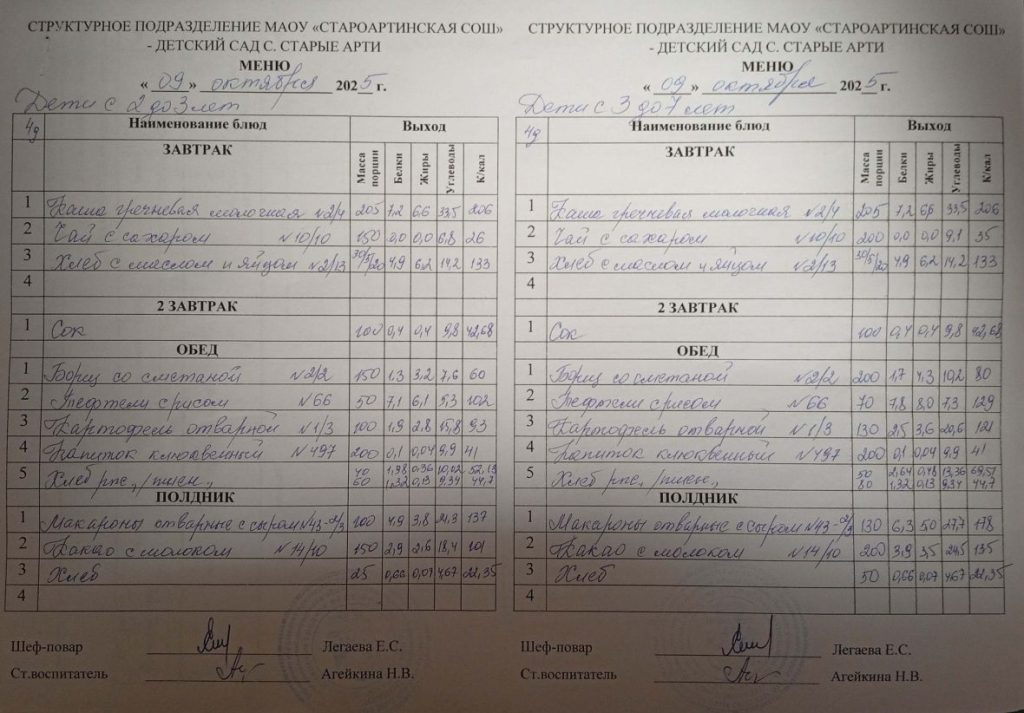 СТРУКТУРНОЕ ПОДРАЗДЕЛЕНИЕ МАОУ «СТАРОАРТИНСКАЯ СОШ»
- ДЕТСКИЙ САД С. СТАРЫЕ АРТИ
МЕНЮ
« 09 » октября 2025 г.
Дети с 2 до 3 лет
4д Наименование блюд Выход
ЗАВТРАК Масса порции Белки Жиры Углеводы К/кал
1 Каша гречневая молочная №2/4 205 7,2 6,6 33,5 206
2 Чай с сахаром №10/10 150 0,0 0,0 6,8 26
3 Хлеб с маслом и яйцом №2/13 30/5/20 4,9 6,2 14,2 133
4
2 ЗАВТРАК
1 Сок 100 0,4 0,4 9,8 42,68
ОБЕД
1 Борщ со сметаной №2/2 150 1,3 3,2 7,6 60
2 Тефтели с рисом №66 50 7,1 6,1 5,3 102
3 Картофель отварной №1/3 100 1,9 2,8 15,8 93
4 Напиток клюквенный №497 200 0,1 0,04 9,9 41
5 Хлеб рж., /пшен., 40 1,98 0,36 10,02 52,13
60 1,32 0,13 9,34 44,7
ПОЛДНИК
1 Макароны отварные с сыром №43-2/3 100 4,9 3,8 21,3 137
2 Какао с молоком №14/10 150 2,9 2,6 18,4 101
3 Хлеб 25 0,66 0,07 4,67 22,35
4
Шеф-повар Легаева Е.С.
Ст.воспитатель Агейкина Н.В.
СТРУКТУРНОЕ ПОДРАЗДЕЛЕНИЕ МАОУ «СТАРОАРТИНСКАЯ СОШ»
- ДЕТСКИЙ САД С. СТАРЫЕ АРТИ
МЕНЮ
« 09 » октября 2025 г.
Дети с 3 до 7 лет
4д Наименование блюд Выход
ЗАВТРАК Масса порции Белки Жиры Углеводы К/кал
1 Каша гречневая молочная №2/4 205 7,2 6,6 33,5 206
2 Чай с сахаром №10/10 200 0,0 0,0 9,1 35
3 Хлеб с маслом и яйцом №2/13 30/5/20 4,9 6,2 14,2 133
4
2 ЗАВТРАК
1 Сок 100 0,4 0,4 9,8 42,68
ОБЕД
1 Борщ со сметаной №2/2 200 1,7 4,3 10,2 80
2 Тефтели с рисом №66 70 7,8 8,0 7,3 129
3 Картофель отварной №1/3 130 2,5 3,6 20,6 121
4 Напиток клюквенный №497 200 0,1 0,04 9,9 41
5 Хлеб рж., /пшен., 50 2,64 0,48 13,36 69,51
80 1,32 0,13 9,34 44,7
ПОЛДНИК
1 Макароны отварные с сыром №43-2/3 130 6,3 5,0 27,7 178
2 Какао с молоком №14/10 200 3,9 3,5 24,5 135
3 Хлеб 50 0,66 0,07 4,67 22,35
4
Шеф-повар Легаева Е.С.
Ст.воспитатель Агейкина Н.В.